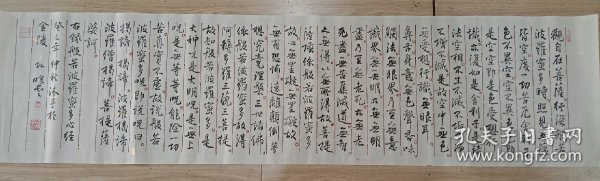 觀自在菩薩行深般若
波羅蜜多時照見五蘊
皆空度一切苦厄舍利子
色不異空空不異色色即
是空空即是色受想行
識亦復如是舍利子是諸
法空相不生不滅不垢不淨
不增不減是故空中無色
無受想行識無眼耳
鼻舌身意無色聲香味
觸法無眼界乃至無意
識界無無明亦無無明
盡乃至無老死亦無老
死盡無苦集滅道無智
亦無得以無所得故菩提
薩埵依般若波羅蜜多
故心無罣礙無罣礙故
無有恐怖遠離顛倒夢
想究竟涅槃三世諸佛
依般若波羅蜜多故得
阿耨多羅三藐三菩提
故知般若波羅蜜多是
大神呪是大明呪是無上
呪是無等等呪能除一切
苦真實不虛故說般若
波羅蜜多呪即說呪曰
揭諦揭諦波羅揭諦
波羅僧揭諦菩提薩
婆訶
右錄般若波羅蜜多心經
癸巳年仲秋沐手於
金陵 孫曉雲
孔子旧书网
www.kongfz.com